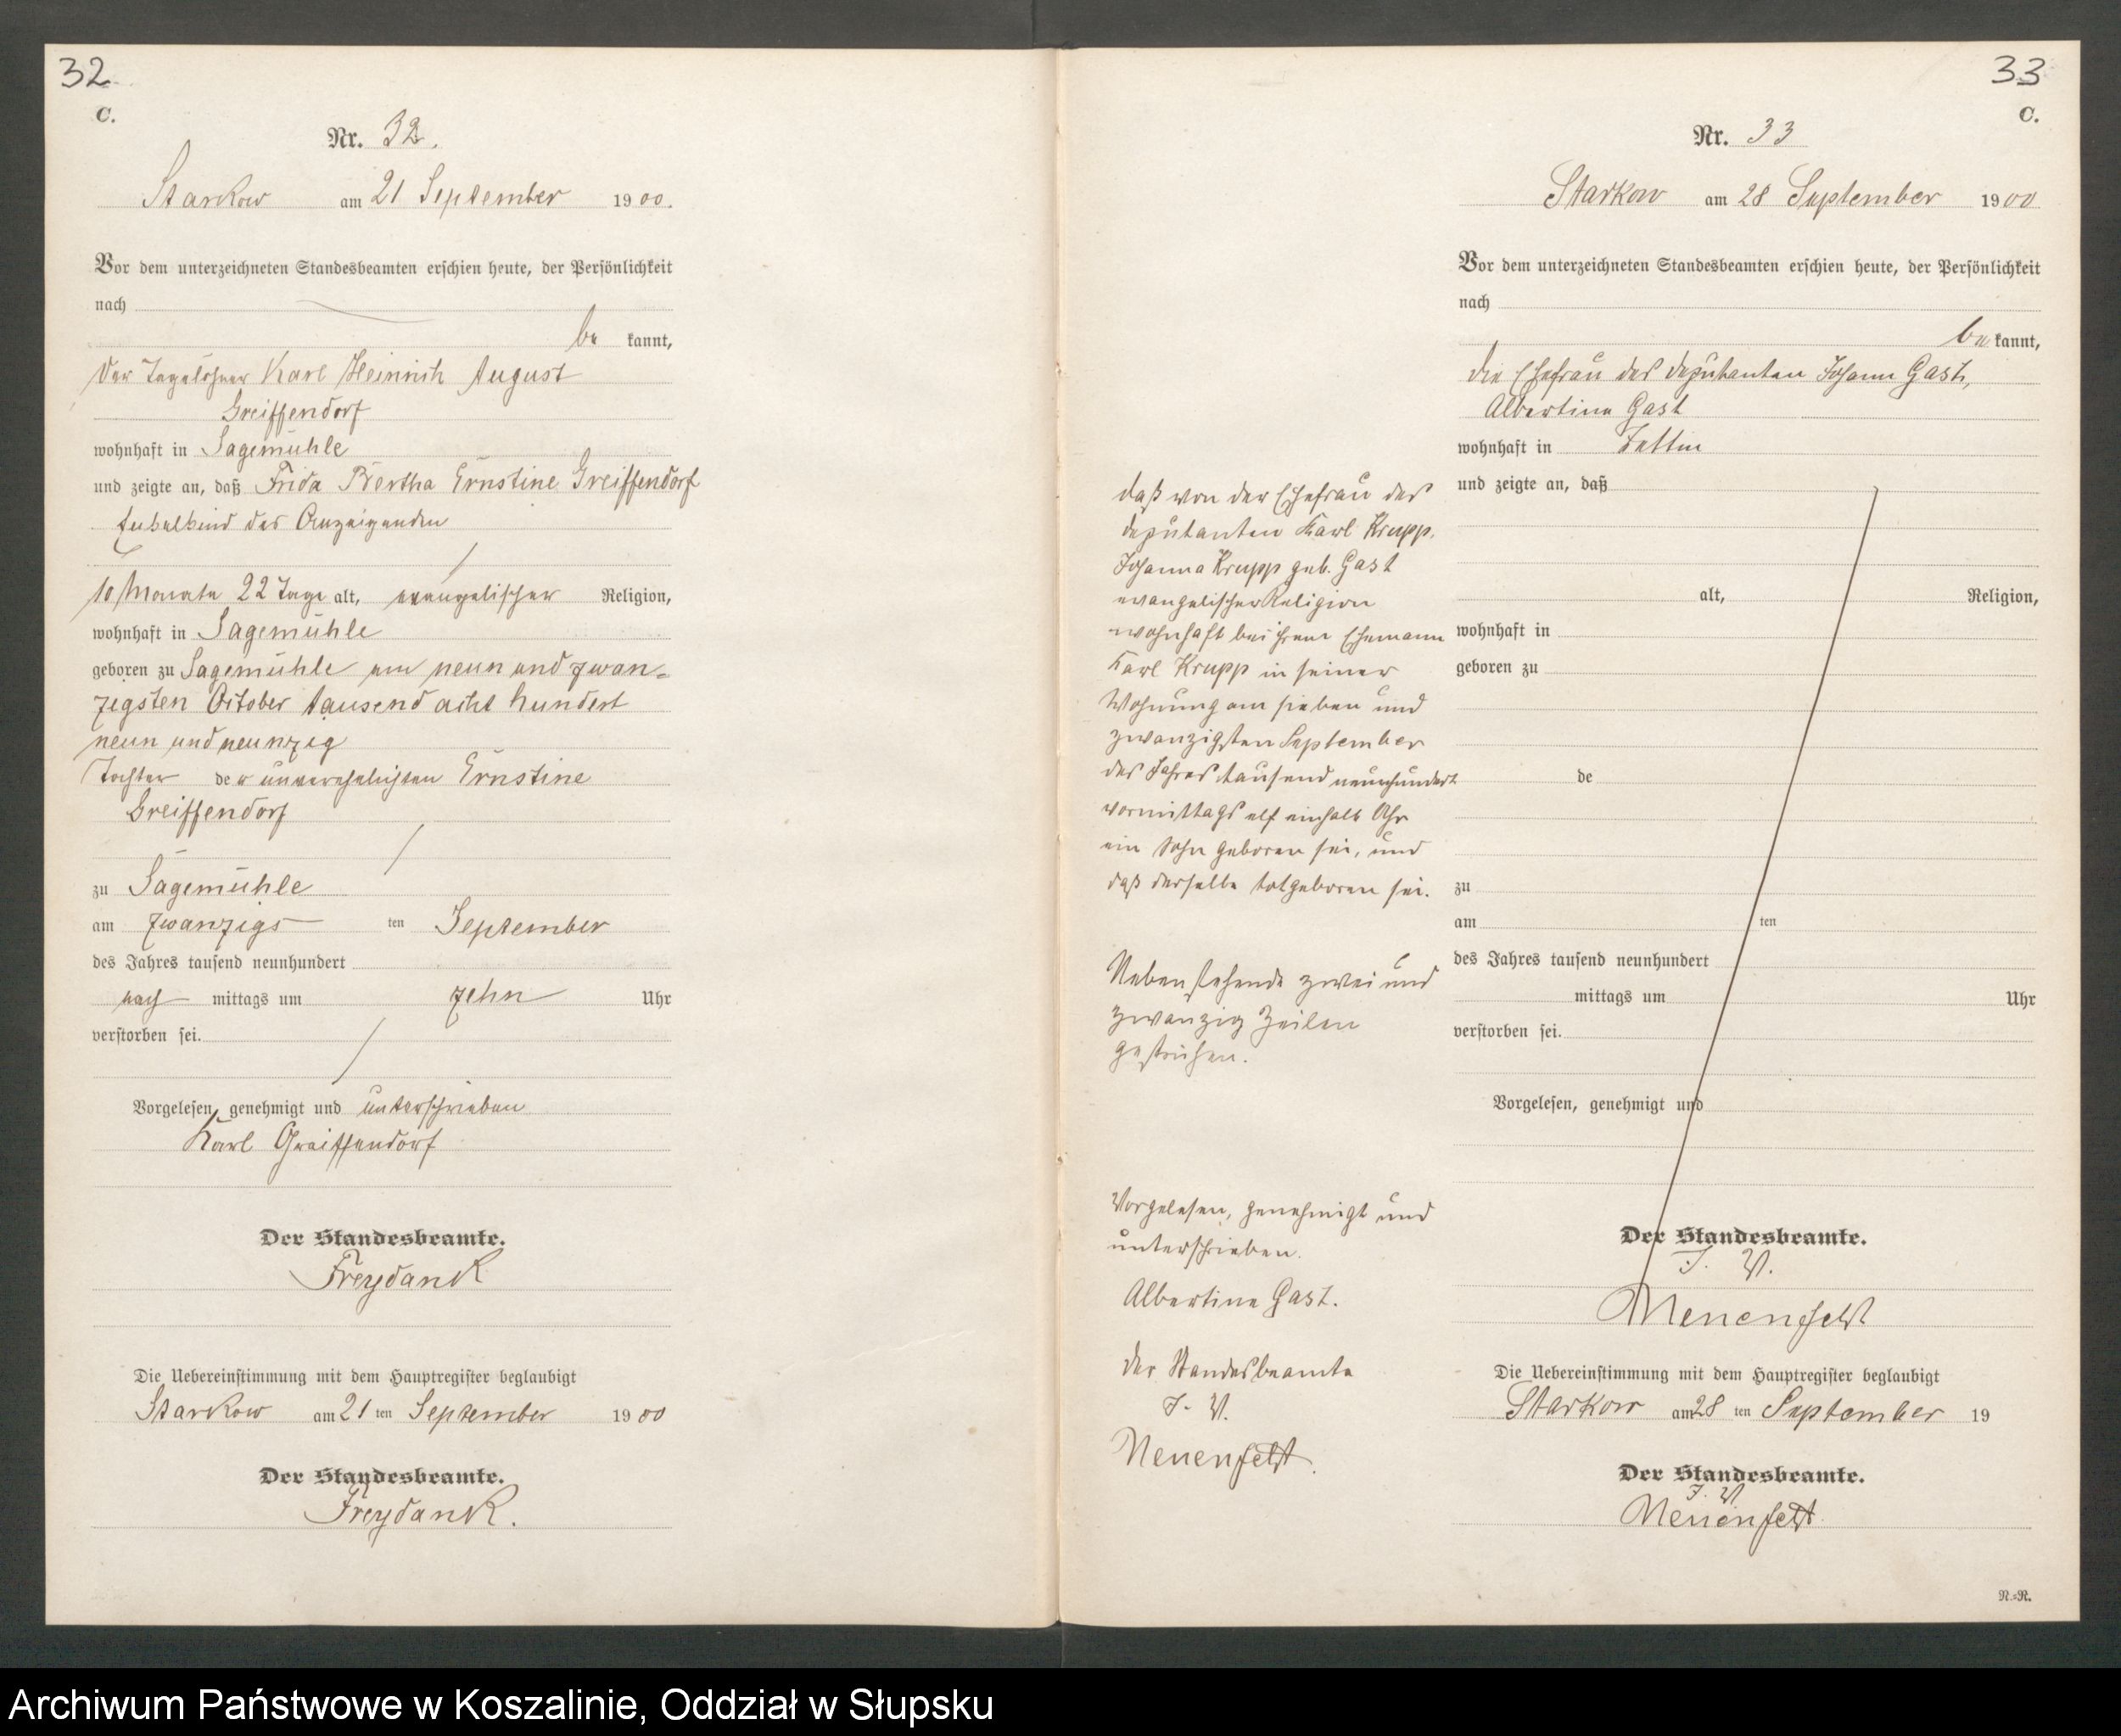 32
C.
Nr. 32.
Starkow am 21 September 1900.
Vor dem unterzeichneten Standesbeamten erschien heute, der Persönlichkeit
nach
be kannt,
der Tagelöhner Karl Heinrich August
Greiffendorf
wohnhaft in Sagemühle
und zeigte an, daß Frida Bertha Ernstine Greiffendorf
des Anzeigenden
10 Monate 22 Tage alt, evangelischer Religion,
wohnhaft in Sagemühle
geboren zu Sagemühle am neun und zwan-
zigsten October tausend acht hundert
neun und neunzig
Tochter der unverehelichten Ernstine
Greiffendorf
zu Sagemühle
am zwanzigs ten September
des Jahres tausend neunhundert
nach mittags um zehn Uhr
verstorben sei.
Vorgelesen, genehmigt und unterschrieben
Karl Greiffendorf
Der Standesbeamte.
Freydank
Die Uebereinstimmung mit dem Hauptregister beglaubigt
Starkow am 21 ten September 1900
Der Standesbeamte.
Freydank.
33
C.
Nr. 33
Starkow am 28 September 1900
Vor dem unterzeichneten Standesbeamten erschien heute, der Persönlichkeit
nach
be kannt,
die Ehefrau des Deputanten Johann Gast,
Albertine Gast
wohnhaft in
und zeigte an, daß
alt, Religion,
wohnhaft in
geboren zu
de
zu
am ten
des Jahres tausend neunhundert
mittags um Uhr
verstorben sei.
Vorgelesen, genehmigt und
daß von der Ehefrau des
Deputanten Karl Krupp,
Johanna Krupp geb. Gast
evangelischer Religion
wohnhaft bei ihrem Ehemann
Karl Krupp in seiner
Wohnung am sieben und
zwanzigsten September
des Jahres tausend neunhundert
vormittags elf einhalb Uhr
ein Sohn geboren sei, und
daß derselbe totgeboren sei.
Nebenstehende zwei und
zwanzig Zeilen
gestrichen.
Vorgelesen, genehmigt und
unterschrieben.
Albertine Gast.
Der Standesbeamte
J. V.
Neuenfeldt.
Der Standesbeamte.
J. V.
Neuenfeldt
Die Uebereinstimmung mit dem Hauptregister beglaubigt
Starkow am 28 ten September 19
Der Standesbeamte.
J. V
Neuenfeldt
N.=N.
Archiwum Państwowe w Koszalinie, Oddział w Słupsku